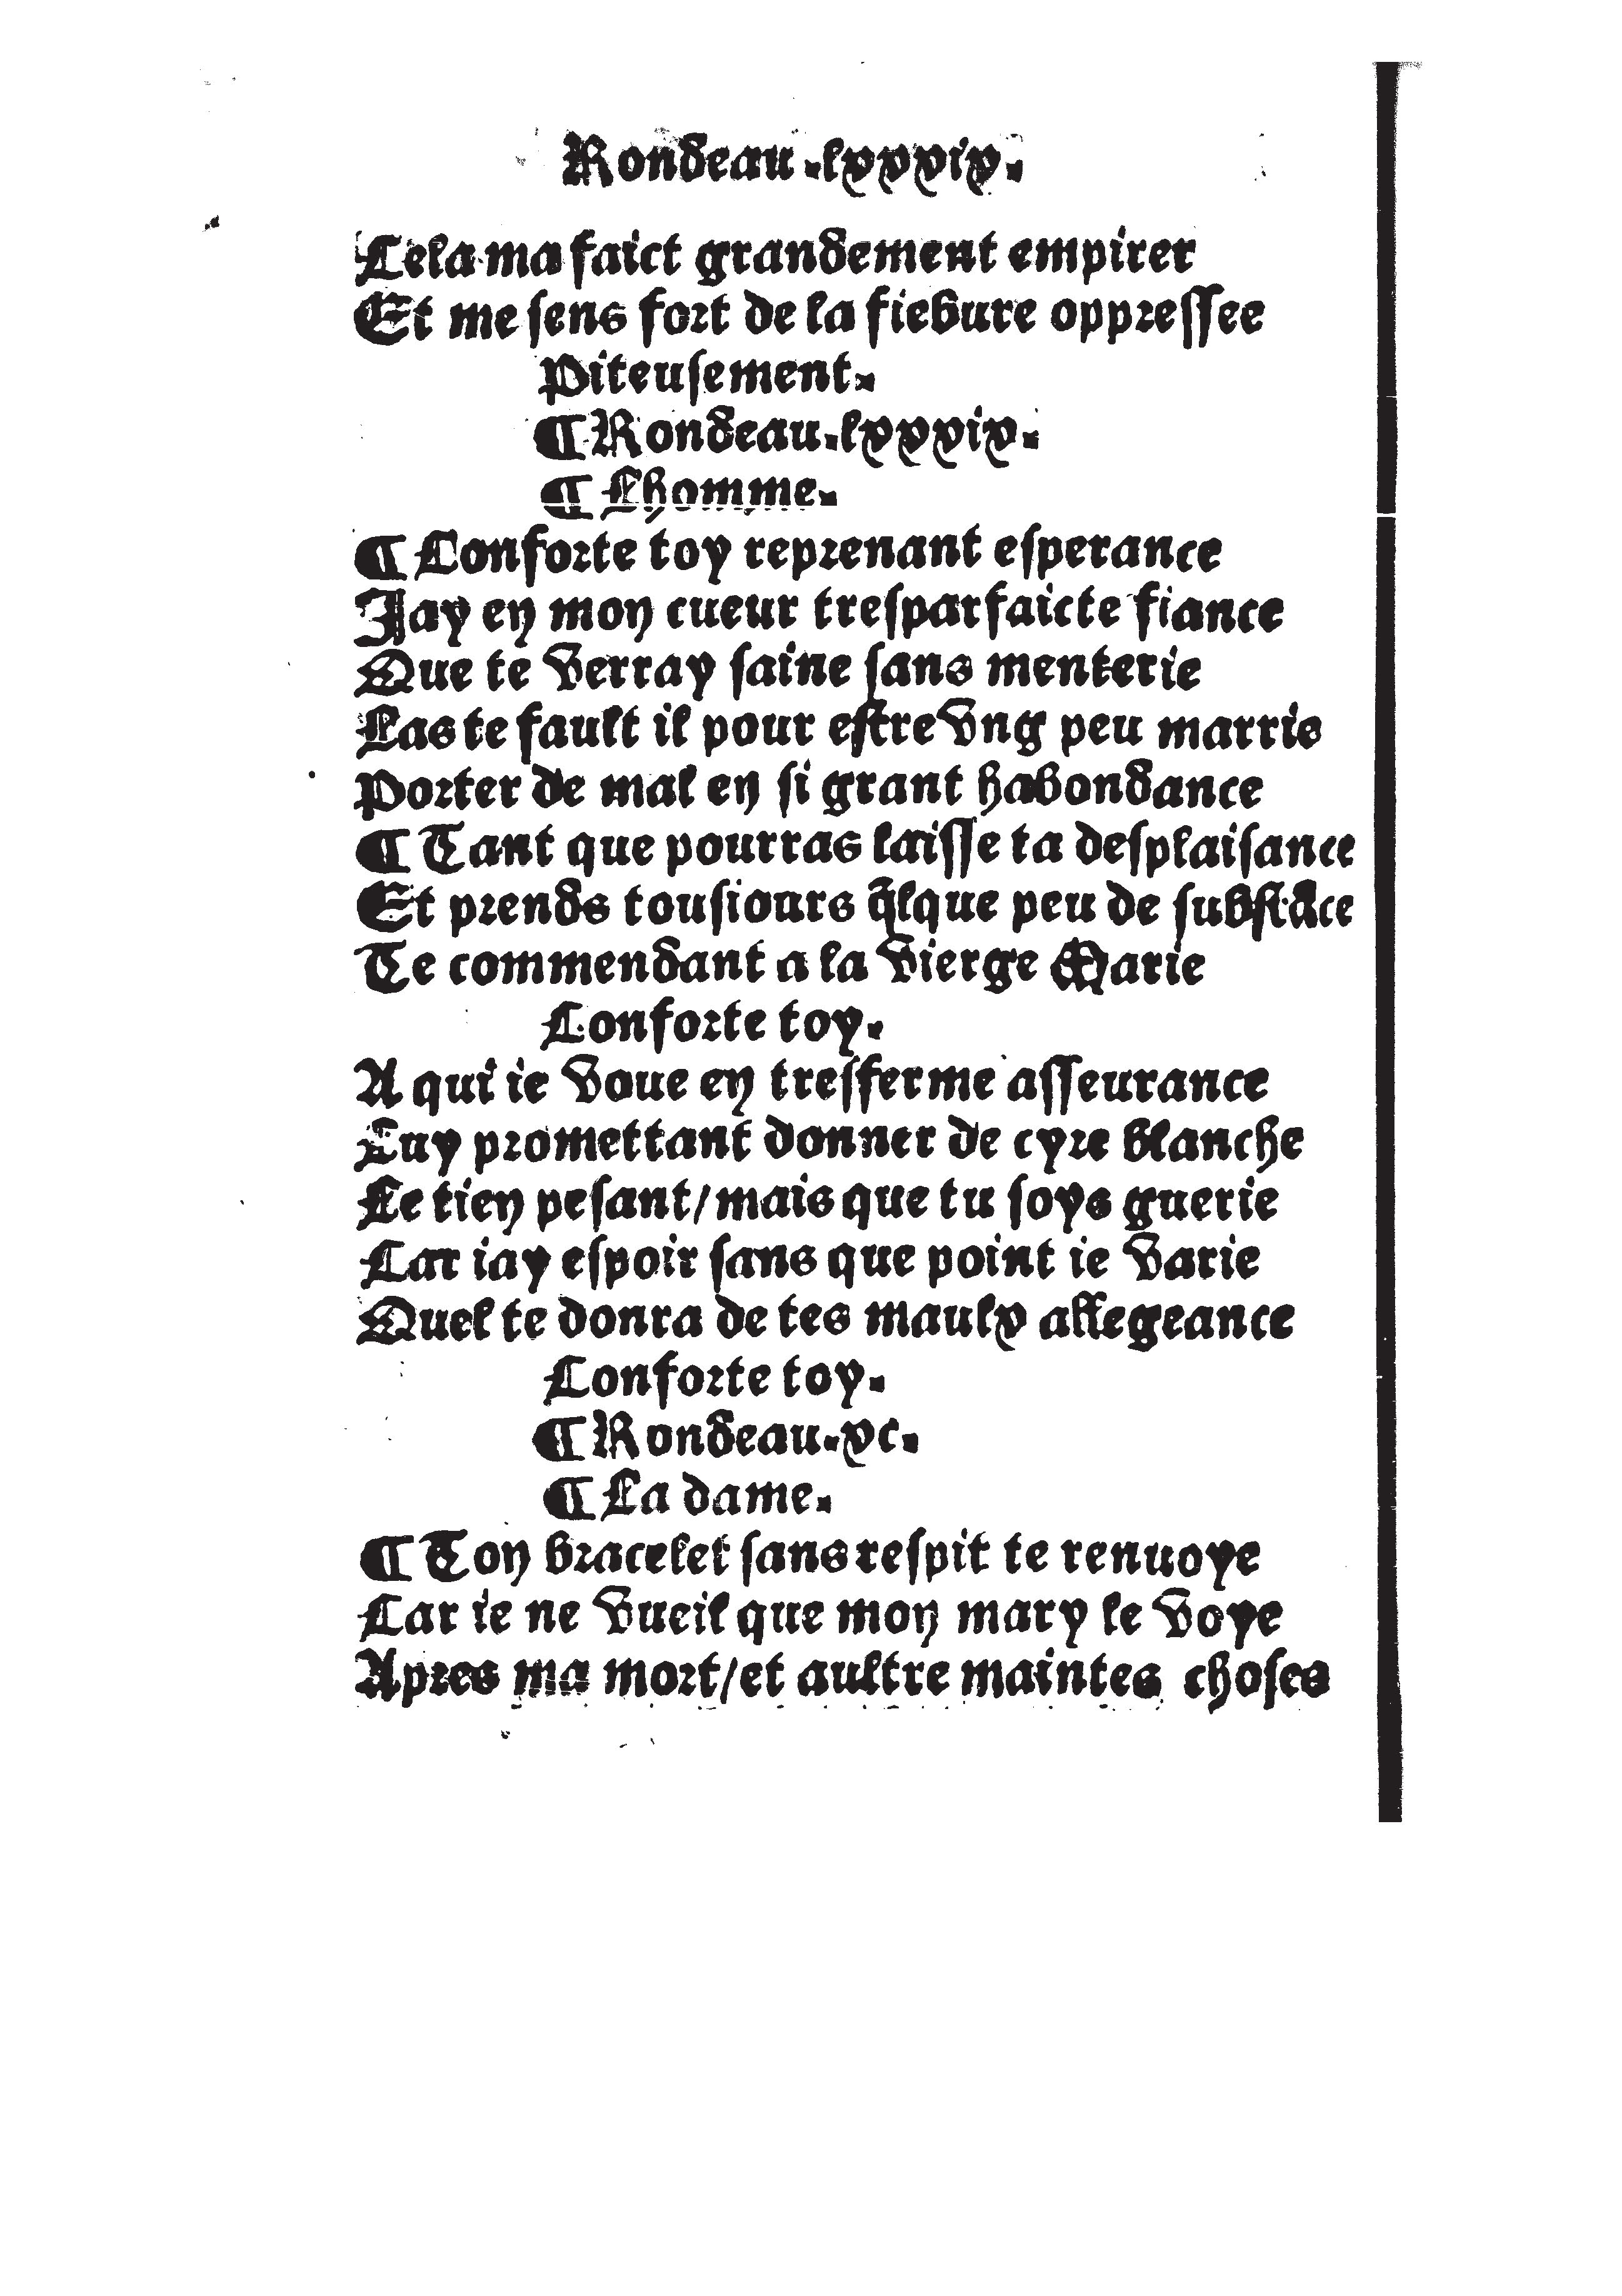 Rondeau .lxxxix.
Cela ma faict grandement empirer
Et me sens fort de la fiebure oppressee
Piteusement.
¶ Rondeau .lxxxix.
¶ Lhomme.
¶ Conforte toy reprenant esperance
Jay en mon cueur tresparfaicte fiance
Que te verray saine sans menterie
Las te fault il pour estre vng peu marrie
Porter de mal en si grant habondance
¶ Tant que pourras laisse ta desplaisance
Et prends tousiours q̃lque peu de substãce
Te commendant a la vierge Marie
Conforte toy.
A qui ie voue en tresferme asseurance
Luy promettant donner de cyre blanche
Le tien pesant/mais que tu soys guerie
Car iay espoir sans que point ie varie
Quel te donra de tes maulx allegeance
Conforte toy.
¶ Rondeau .xc.
¶ La dame.
¶ Ton bracelet sans respit te renuoye
Car ie ne vueil que mon mary le voye
Apres ma mort/et aultre maintes choses